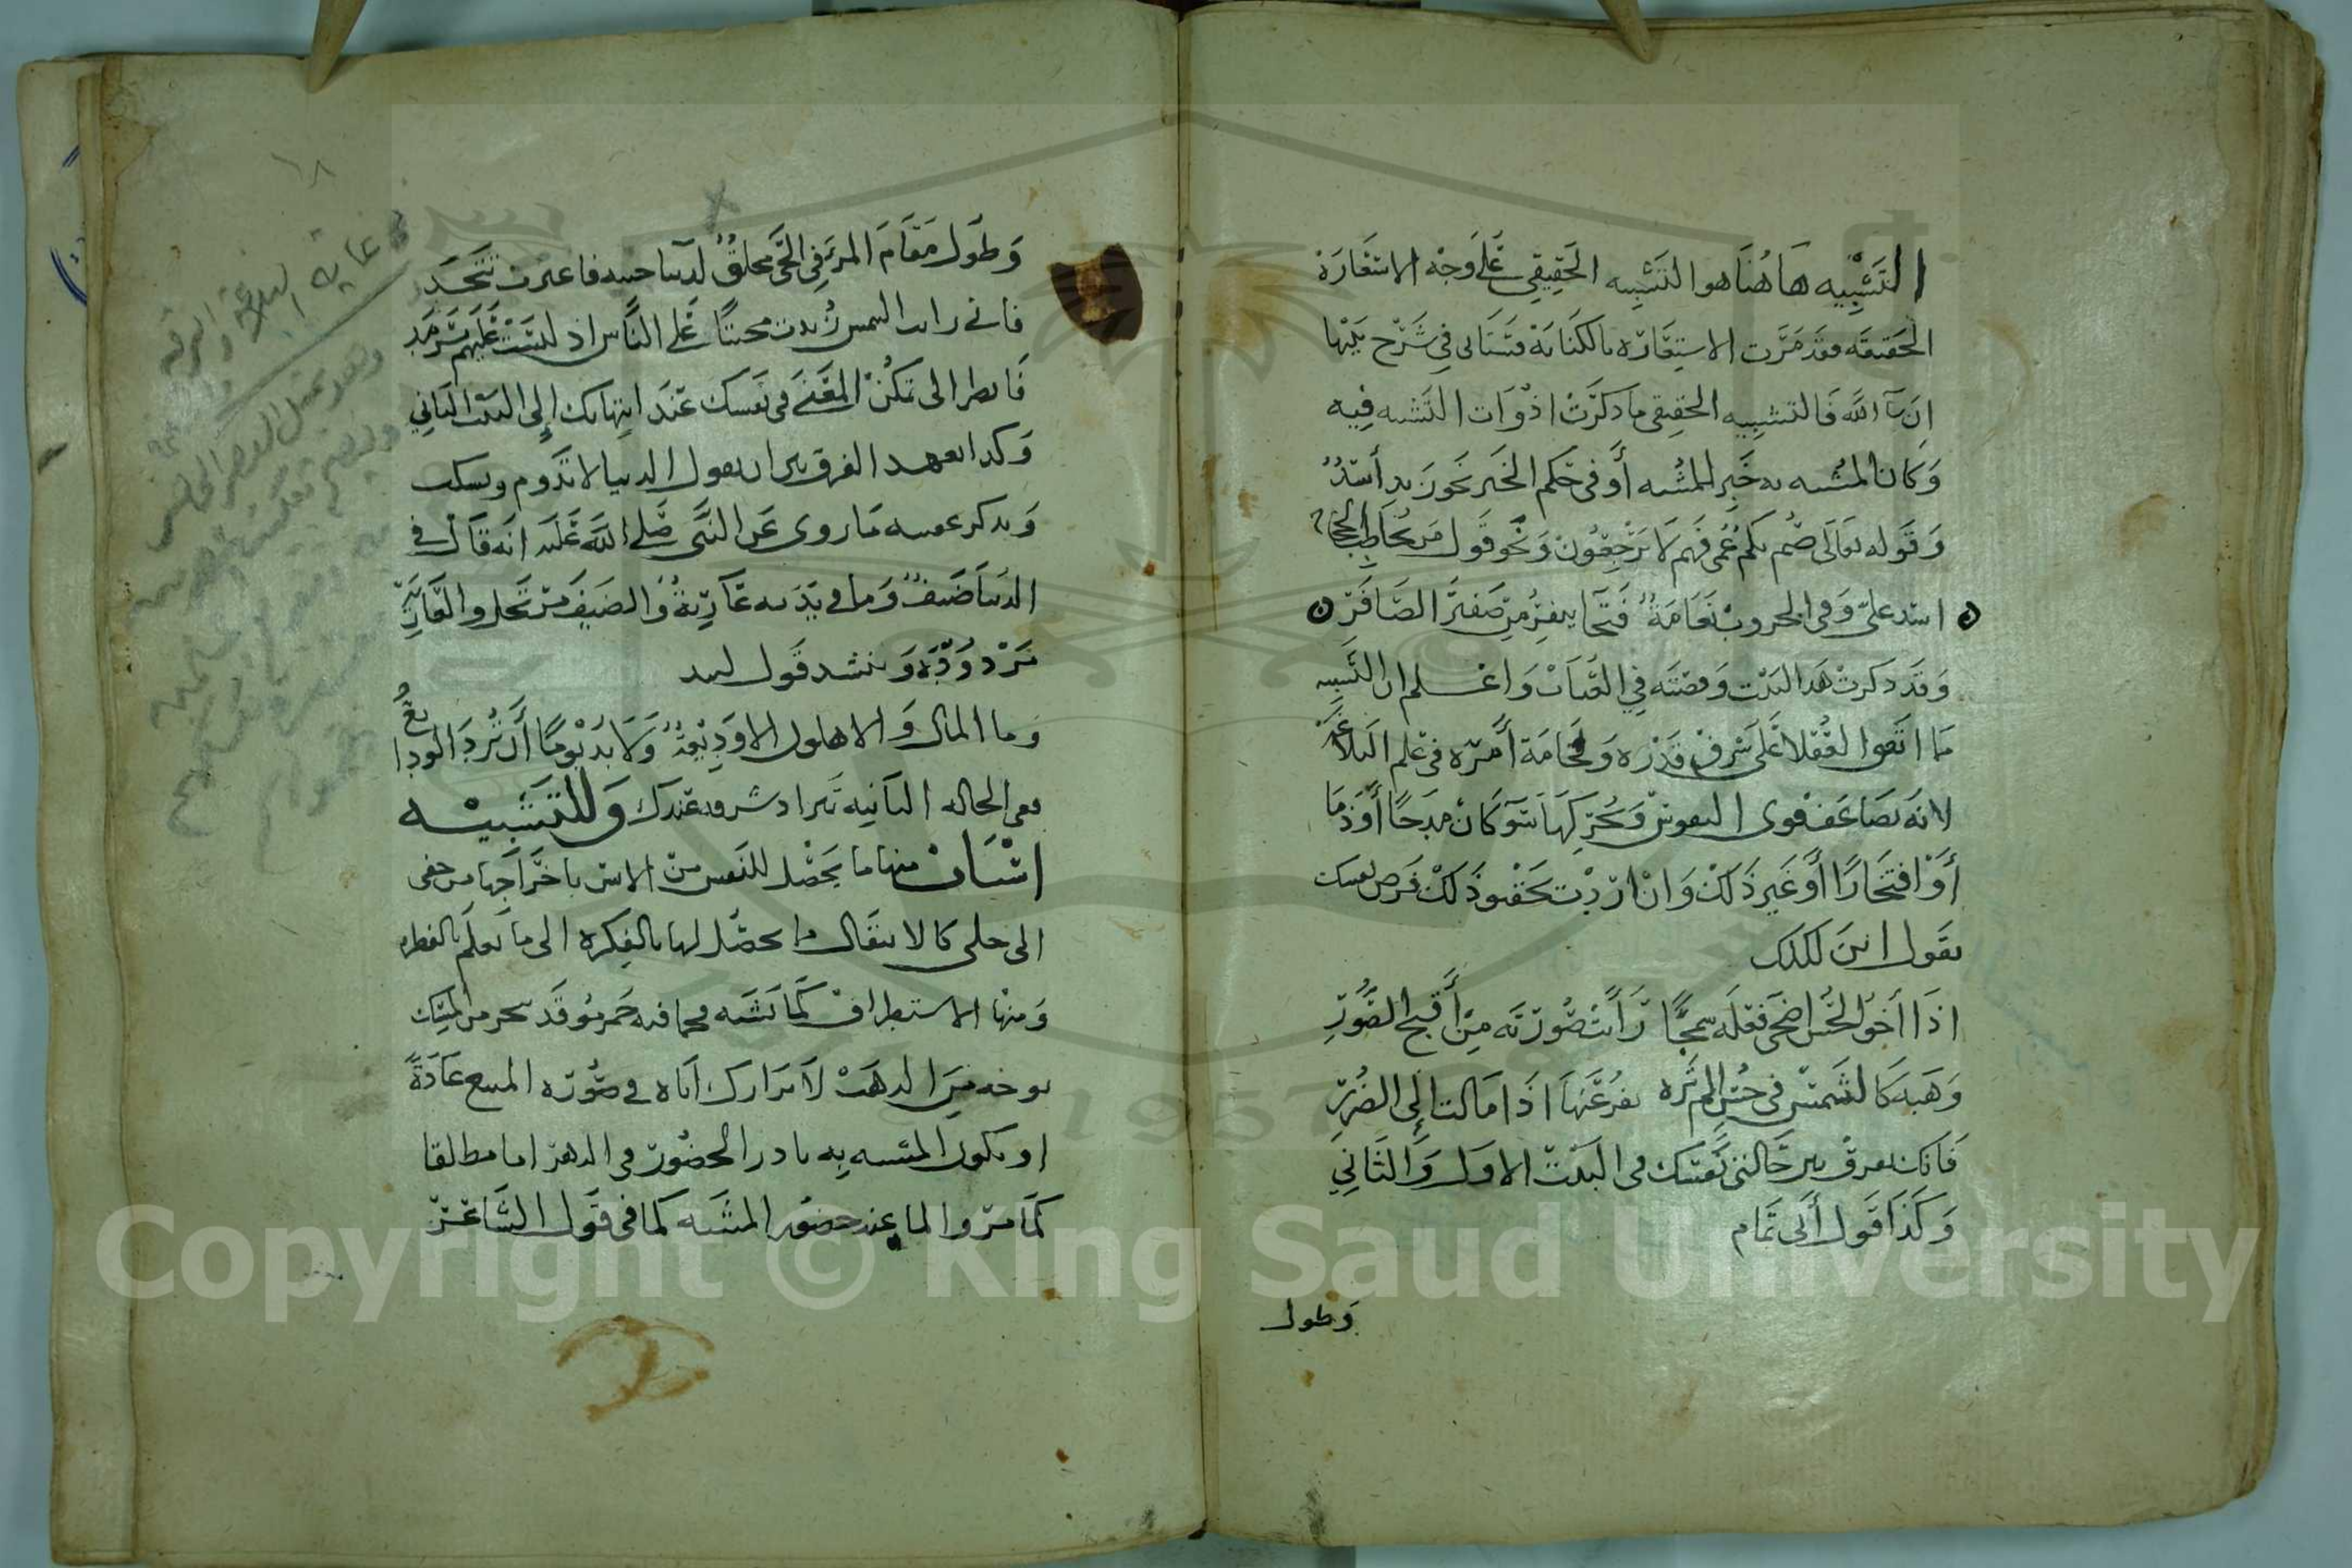 التشبيه هاهنا هو التشبيه الحقيقي على وجه الاستعارة
الحقيقه فقد مرت الاستعاره بالكنايه فتتاتى في شرح بيتها
ان شآ الله فالتشبيه الحقيقي ما ذكرت ادوات التشبه فيه
وكان المشبه به خبر للمشبه أو في حكم الخبر نحو زيد أسد
وقوله تعالى صم بكم عمي فهم لا يرجعون ونحو قول من يخاطب الحجاج
اسد علي وفي الحروب نعامة فتحا ينفر من صفير الصافر
وقد ذكرت هذا البيت وقصته في العباب واعلم ان التشبيه
ما اتفق العقلا على شرف قدره وفخامة أمره في علم البلاغه
لانه يضاعف قوى النفوس وتحريكها سوآ كان مدحا أو ذما
أو افتخارا أو غير ذلك وان اردت تحقيق ذلك فرض نفسك
بقول ابن لنكك
اذا أخو الحسن اضحى فعله سمجا رأيت صورته من أقبح الصور
وهبه كالشمس في حسن الم تره نفر عنها اذا مالت إلى الضرر
فانك تفرق بين حالتي نفسك في البيت الاول والثاني
وكذا قول أبي تمام
وطول
١٨
وطول مقام المرء في الحي مخلق لديباجتيه فاغترب تتجدد
فاني رايت الشمس زيدت محبتا على الناس اذ ليست عليهم بسرمد
فانظر الى تمكن المعنى في نفسك عند انتهايك إلى البيت الثاني
وكذا تعهد الفرق بين ان تقول الدنيا لا تدوم وتسكت
وتذكر عقيبه ما روى عن النبي صلى الله عليه انه قال من في
الدنيا ضيف وما في يديه عارية والضيف مرتحل والعارية
مردودة وتنشد قول لبيد
وما المال والاهلون الا وديعة ولا بد يوما أن ترد الودايع
ففي الحاله الثانيه تزداد شرفه عندك وللتشبيه
اسباب منها ما يحصل للنفس من الانس باخراجها من خفي
الى جلي كالانتقال مما يحصل لها بالفكره الى ما تعلم بالفطره
ومنها الاستطراف كما تشبه فحما فيه جمر موقد ببحر من المسك
موجه من الذهب لابرازك اياه في صوره الممتنع عادة
او يكون المشبه به نادر الحضور في الذهن اما مطلقا
كما مر واما عند حضور المشبه كما في قول الشاعر